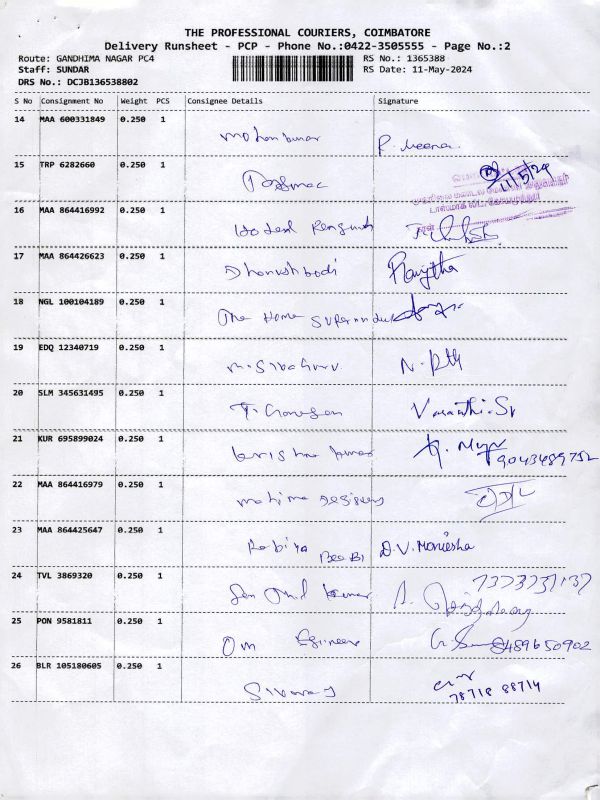 THE PROFESSIONAL COURIERS, COIMBATORE
Delivery Runsheet - PCP - Phone No.:0422-3505555 - Page No.:2
Route: GANDHIMA NAGAR PC4 RS No.: 1365388
Staff: SUNDAR RS Date: 11-May-2024
DRS No.: DCJB136538802
S No Consignment No Weight PCS Consignee Details Signature
14 MAA 600331849 0.250 1
mohankumar P. Meena
15 TRP 6282660 0.250 1
11/5/24
16 MAA 864416992 0.250 1
Hotel
17 MAA 864426623 0.250 1
Dhanushkodi Ranjitha
18 NGL 100104189 0.250 1
The Home
19 EDQ 12340719 0.250 1
20 SLM 345631495 0.250 1
Vasanthi.
21 KUR 695899024 0.250 1
krishna kumar
9043489752
22 MAA 864416979 0.250 1
mahima designers
23 MAA 864425647 0.250 1
Rabiya BeeBi D.V. Moniesha
24 TVL 3869320 0.250 1
kumar
25 PON 9581811 0.250 1
Om Egineer 8489650902
26 BLR 105180605 0.250 1
Sivaraj
78718 88714